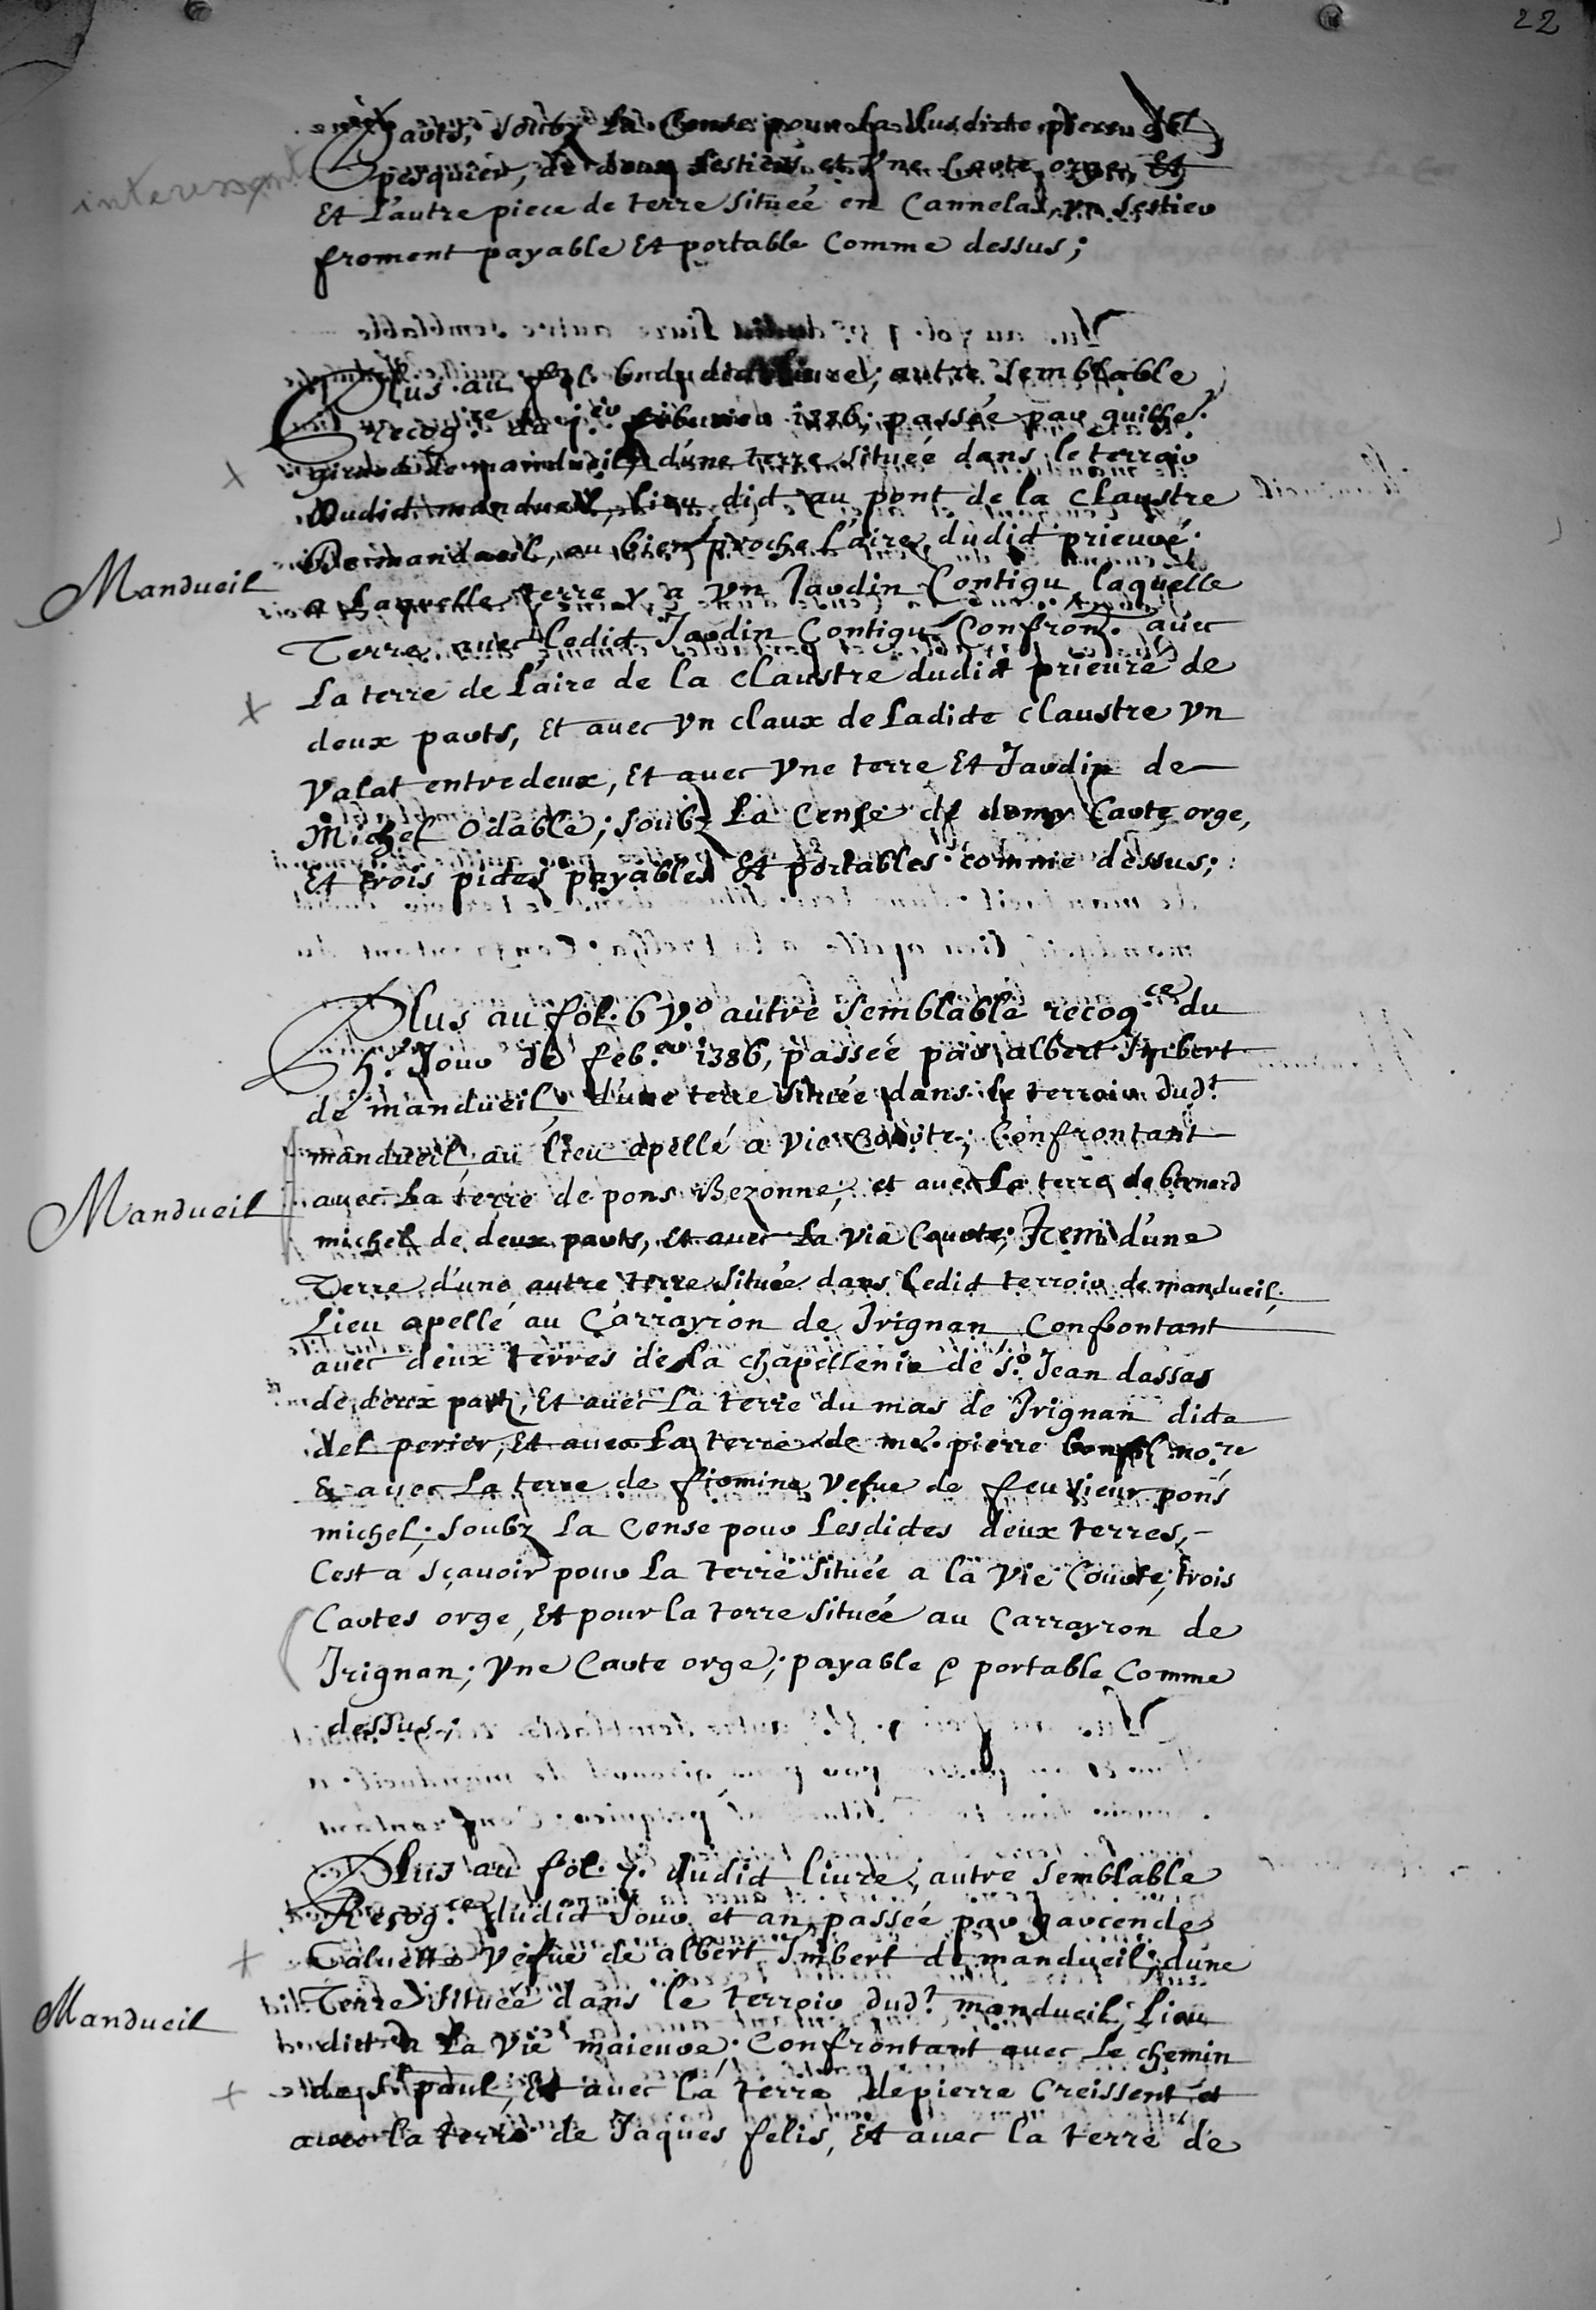 22
interessant
parts, soubz la Cense pour la susdicte piece del
pesquier, de deux sestiers et Vne Carte orge, Et
Et L'autre piece de terre Située en Cannelas, vn sestier
froment payable Et portable Comme dessus;
Plus au fol. 6 dudict Liure, autre Semblable
recog.ce du feburier 1386; passée par guilhe.
de mandueil, d'une terre située dans le terroir
Dudict mandueil, Lieu dict au pont de la Claustre
De mandueil, ou bien proche L'aire dudict prieuré
Mandueil
a Laquelle terre y a vn Jardin Contigu, laquelle
Terre avec Ledict Jardin Contigu Confron. avec
La terre de L'aire de la Claustre dudict prieuré de
deux parts, Et avec vn claux de Ladicte Claustre vn
Valat entredeux, Et avec Vne terre Et Jardin de
Michel Odable; soubz La Cense de demy Carte orge,
Et trois pictes payables Et portables comme dessus;
Plus au fol. 6 v.o autre Semblable recog.ce du
h.e Jour de feb.er 1386, passée par albert Imbert
de mandueil, d'une terre située dans le terroir dud.t
mandueil, au lieu apellé a Vie Courte; Confrontant
avec La terre de pons Bezonne, et avec La terre de bernard
Mandueil
michel de deux parts, et avec La Vie Courte; Item d'une
Terre d'une autre terre Située dans Ledict terroir de mandueil,
Lieu apellé au Carrayron de Irignan, Confrontant
avec deux terres de la chapellenie de S.o Jean dassas
de deux parts, Et avec La terre du mas de Irignan dicte
del perier, Et avec La terre de m.e pierre no.re
& avec La terre de fiomine Vefue de feu sieur pons
michel; Soubz La Cense pour Lesdictes deux terres,
C'est a sçavoir pour La terre Située a la Vie Courte, trois
Cartes orge, Et pour la terre Située au Carrayron de
Irignan; Vne Carte orge; payable & portable Comme
dessus;
Plus au fol. 7. dudict liure, autre Semblable
Recog.ce dudict Jour et an, passée par garcende
Caluette Vefue de albert Imbert de mandueil, d'une
Terre située dans le terroir dud.t mandueil, Lieu
Mandueil
dict a La Vie maieure, Confrontant avec Le chemin
de S.t paul, Et avec La terre de pierre Creissent et
avec la terre de Jaques felis, Et avec la terre de